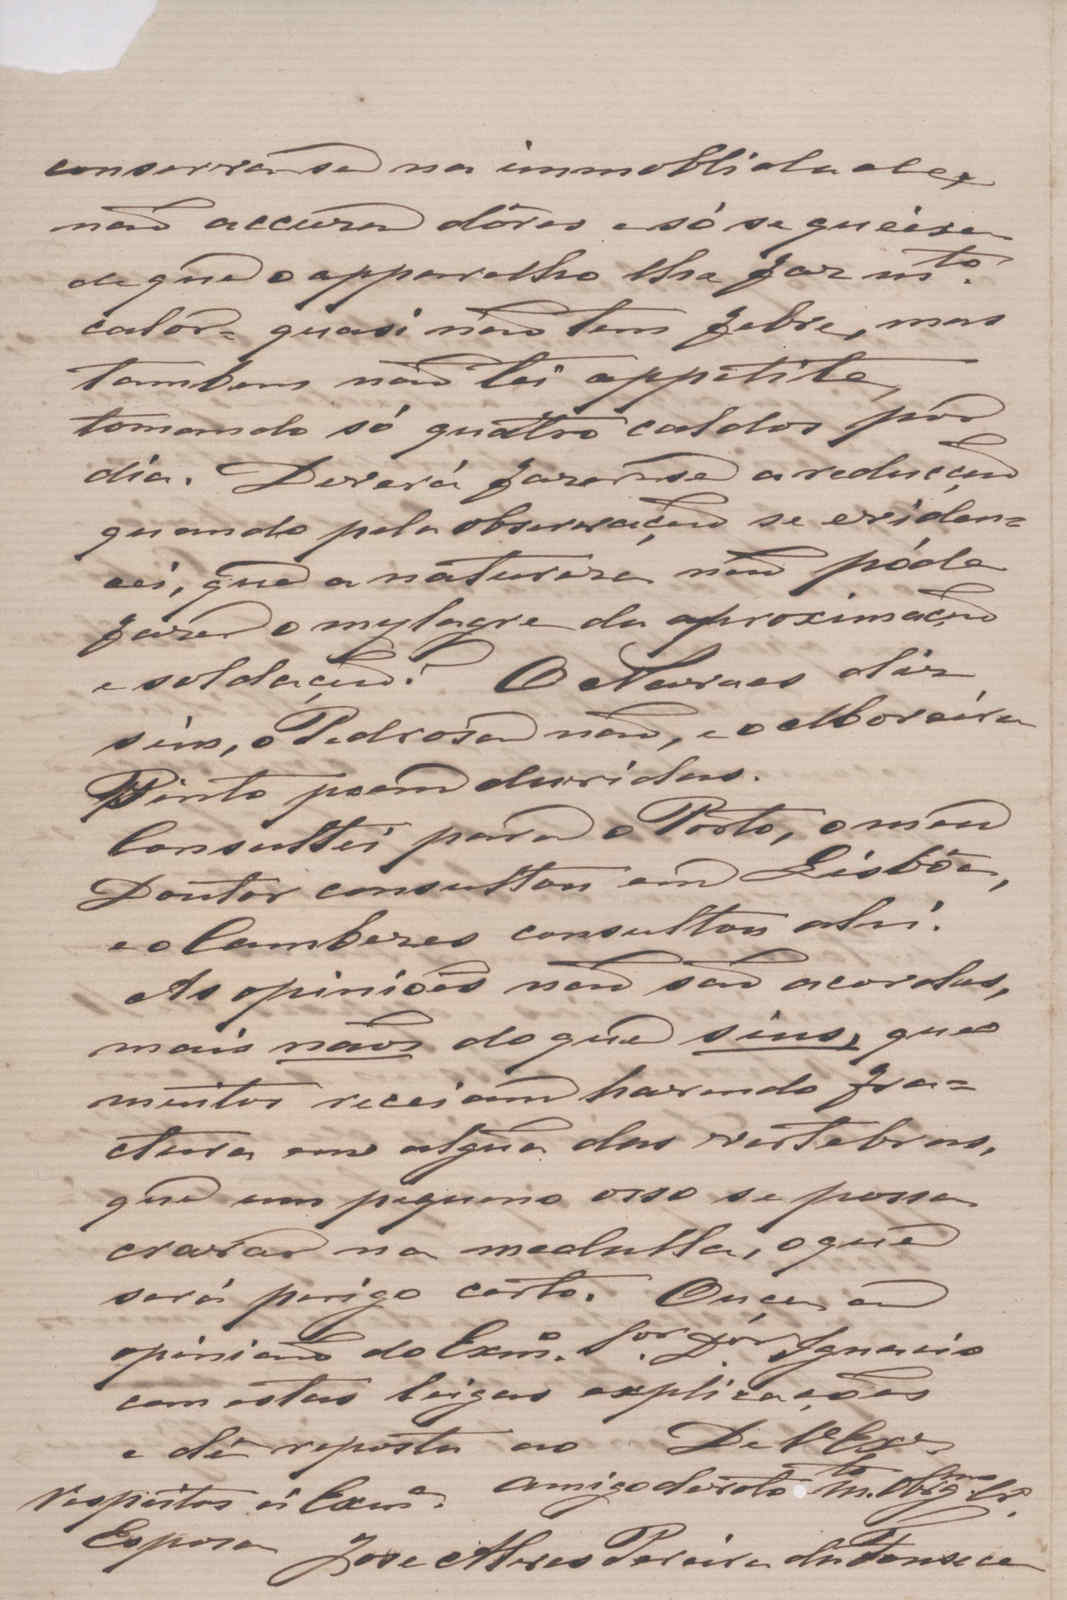 conservar-se na immoblidade,
não accura dôres e só se queixa
de que o apparelho lhe faz mto.
calor = quasi não tem febre, mas
tambem não tei appetite,
tomando só quatro caldos por
dia. Deverá fazer-se a reducção
quando pela observação se eviden=
cei, que a natureza não póde
fazer o mylagre da aproximação
e soldação? O Navaes diz
sim, o Pedrosa não, e o Moreira
Pinto poem duvidas.
Consultei para o Porto, o meu
Doutor consultou em Lisbôa,
e o Cambezes consultou ahi.
As opiniões não são acordas,
mais nãos do que sins, que
muitos receiam havendo fra=
ctura em algũa das vertebras,
que um pequeno osso se possa
cravar na medulla, o que
será perigo certo. Ouça a
opinião do Exmo. Sor. Dor. Ignacio
com estas leigas explicações
e dê reposta ao De V.Exa.
Respeitos á Exma. amigo devoto to m. Obrigmo. Cr.
Esposa Jose Alves Pereira da Fonseca